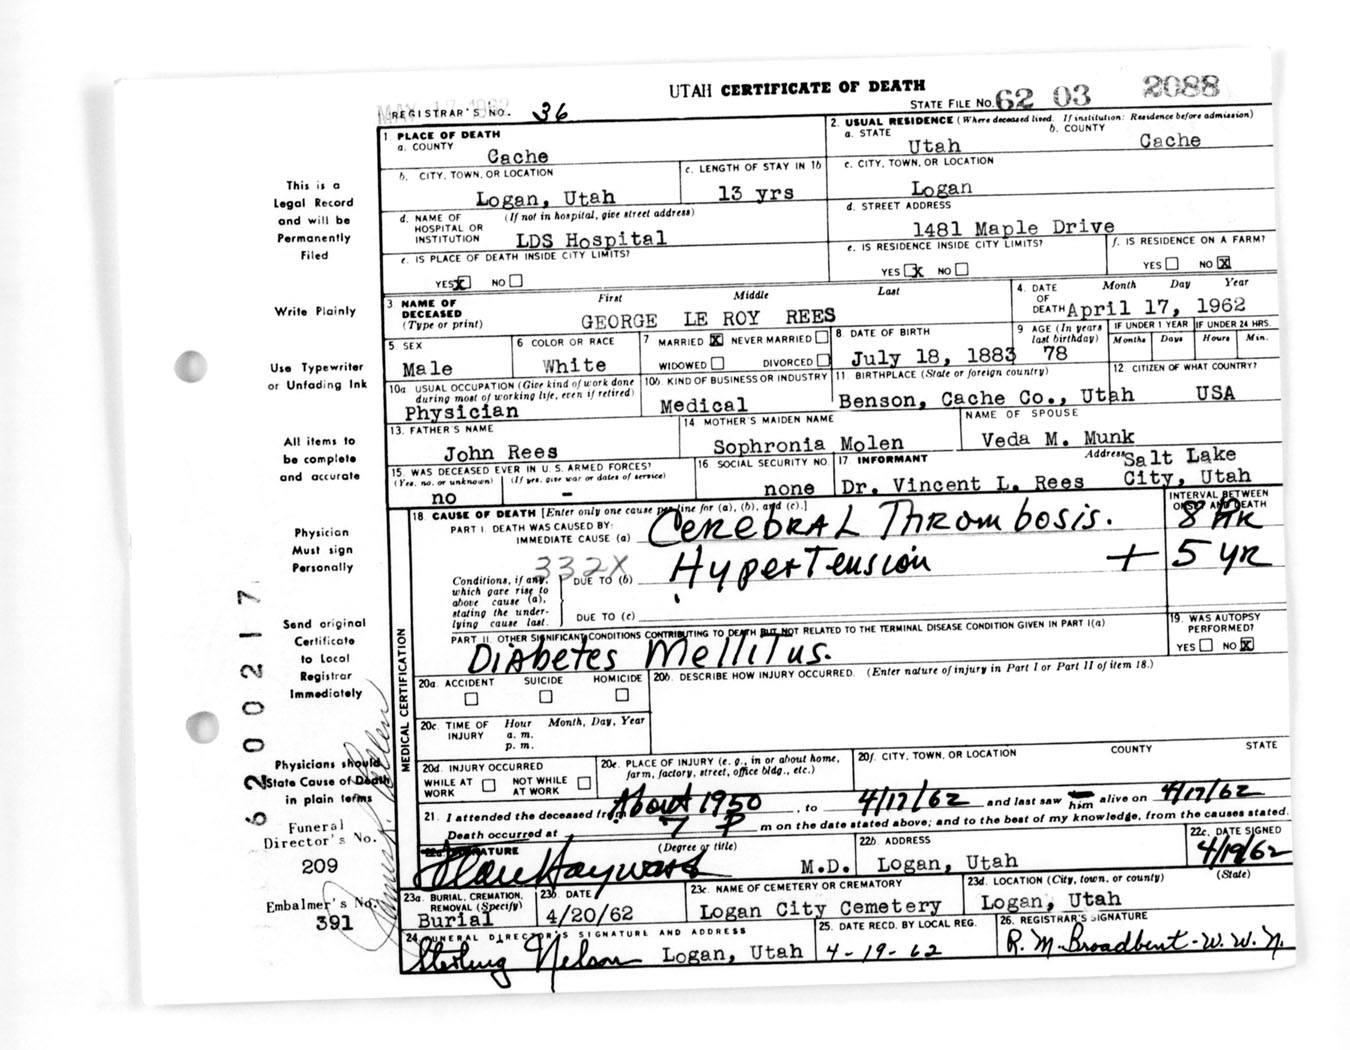 UTAH CERTIFICATE OF DEATH
MAY 17 1962
REGISTRAR'S NO. 36
STATE FILE NO. 62 03 2088
1 PLACE OF DEATH
a. COUNTY
Cache
b. CITY, TOWN, OR LOCATION
Logan, Utah
c. LENGTH OF STAY IN 1b
13 yrs
d. NAME OF HOSPITAL OR INSTITUTION (If not in hospital, give street address)
LDS Hospital
e. IS PLACE OF DEATH INSIDE CITY LIMITS?
YES X NO
2. USUAL RESIDENCE (Where deceased lived. If institution: Residence before admission)
a. STATE
Utah
b. COUNTY
Cache
c. CITY, TOWN, OR LOCATION
Logan
d. STREET ADDRESS
1481 Maple Drive
e. IS RESIDENCE INSIDE CITY LIMITS?
YES X NO
f. IS RESIDENCE ON A FARM?
YES NO X
3 NAME OF DECEASED (Type or print)
First Middle Last
GEORGE LE ROY REES
4. DATE OF DEATH
Month Day Year
April 17, 1962
5. SEX
Male
6 COLOR OR RACE
White
7 MARRIED X NEVER MARRIED
WIDOWED DIVORCED
8 DATE OF BIRTH
July 18, 1883
9 AGE (In years last birthday)
78
IF UNDER 1 YEAR
Months Days
IF UNDER 24 HRS.
Hours Min.
10a. USUAL OCCUPATION (Give kind of work done during most of working life, even if retired)
Physician
10b. KIND OF BUSINESS OR INDUSTRY
Medical
11. BIRTHPLACE (State or foreign country)
Benson, Cache Co., Utah
12 CITIZEN OF WHAT COUNTRY?
USA
13. FATHER'S NAME
John Rees
14 MOTHER'S MAIDEN NAME
Sophronia Molen
NAME OF SPOUSE
Veda M. Munk
15. WAS DECEASED EVER IN U. S. ARMED FORCES?
(Yes, no, or unknown) (If yes, give war or dates of service)
no -
16. SOCIAL SECURITY NO.
none
17 INFORMANT
Dr. Vincent L. Rees
Address
Salt Lake City, Utah
18 CAUSE OF DEATH [Enter only one cause per line for (a), (b), and (c).]
INTERVAL BETWEEN ONSET AND DEATH
PART I. DEATH WAS CAUSED BY:
IMMEDIATE CAUSE (a) Cerebral Thrombosis. 8 HR
332X
Conditions, if any, which gave rise to above cause (a), stating the underlying cause last.
DUE TO (b) Hypertension + 5 yr
DUE TO (c)
PART II. OTHER SIGNIFICANT CONDITIONS CONTRIBUTING TO DEATH BUT NOT RELATED TO THE TERMINAL DISEASE CONDITION GIVEN IN PART I(a)
Diabetes Mellitus.
19. WAS AUTOPSY PERFORMED?
YES NO X
MEDICAL CERTIFICATION
20a. ACCIDENT SUICIDE HOMICIDE
20b. DESCRIBE HOW INJURY OCCURRED. (Enter nature of injury in Part I or Part II of item 18.)
20c. TIME OF INJURY
Hour Month, Day, Year
a. m.
p. m.
20d. INJURY OCCURRED
WHILE AT WORK NOT WHILE AT WORK
20e. PLACE OF INJURY (e. g., in or about home, farm, factory, street, office bldg., etc.)
20f. CITY, TOWN, OR LOCATION COUNTY STATE
21. I attended the deceased from About 1950, to 4/17/62 and last saw him alive on 4/17/62
Death occurred at 7 P m on the date stated above; and to the best of my knowledge, from the causes stated.
22a. SIGNATURE (Degree or title)
M.D.
22b. ADDRESS
Logan, Utah
22c. DATE SIGNED
4/19/62
23a. BURIAL, CREMATION, REMOVAL (Specify)
Burial
23b. DATE
4/20/62
23c. NAME OF CEMETERY OR CREMATORY
Logan City Cemetery
23d. LOCATION (City, town, or county) (State)
Logan, Utah
24. FUNERAL DIRECTOR'S SIGNATURE AND ADDRESS
Sterling Nelson Logan, Utah
25. DATE RECD. BY LOCAL REG.
4-19-62
26. REGISTRAR'S SIGNATURE
R. M. Broadbent - W. W. N.
This is a
Legal Record
and will be
Permanently
Filed
Write Plainly
Use Typewriter
or Unfading Ink
All items to
be complete
and accurate
Physician
Must sign
Personally
Send original
Certificate
to Local
Registrar
Immediately
Physicians should
State Cause of Death
in plain terms
Funeral
Director's No.
209
Embalmer's No.
391
6200217